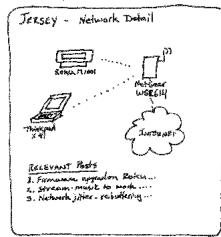 JERSEY - Network Detail
Roku M1001
NetGear
WGR614
Thinkpad
X41
INTERNET
RELEVANT POSTS
1. Firmware upgrade on Roku...
2. Stream music to work ....
3. Network jitter - rebuffering ...